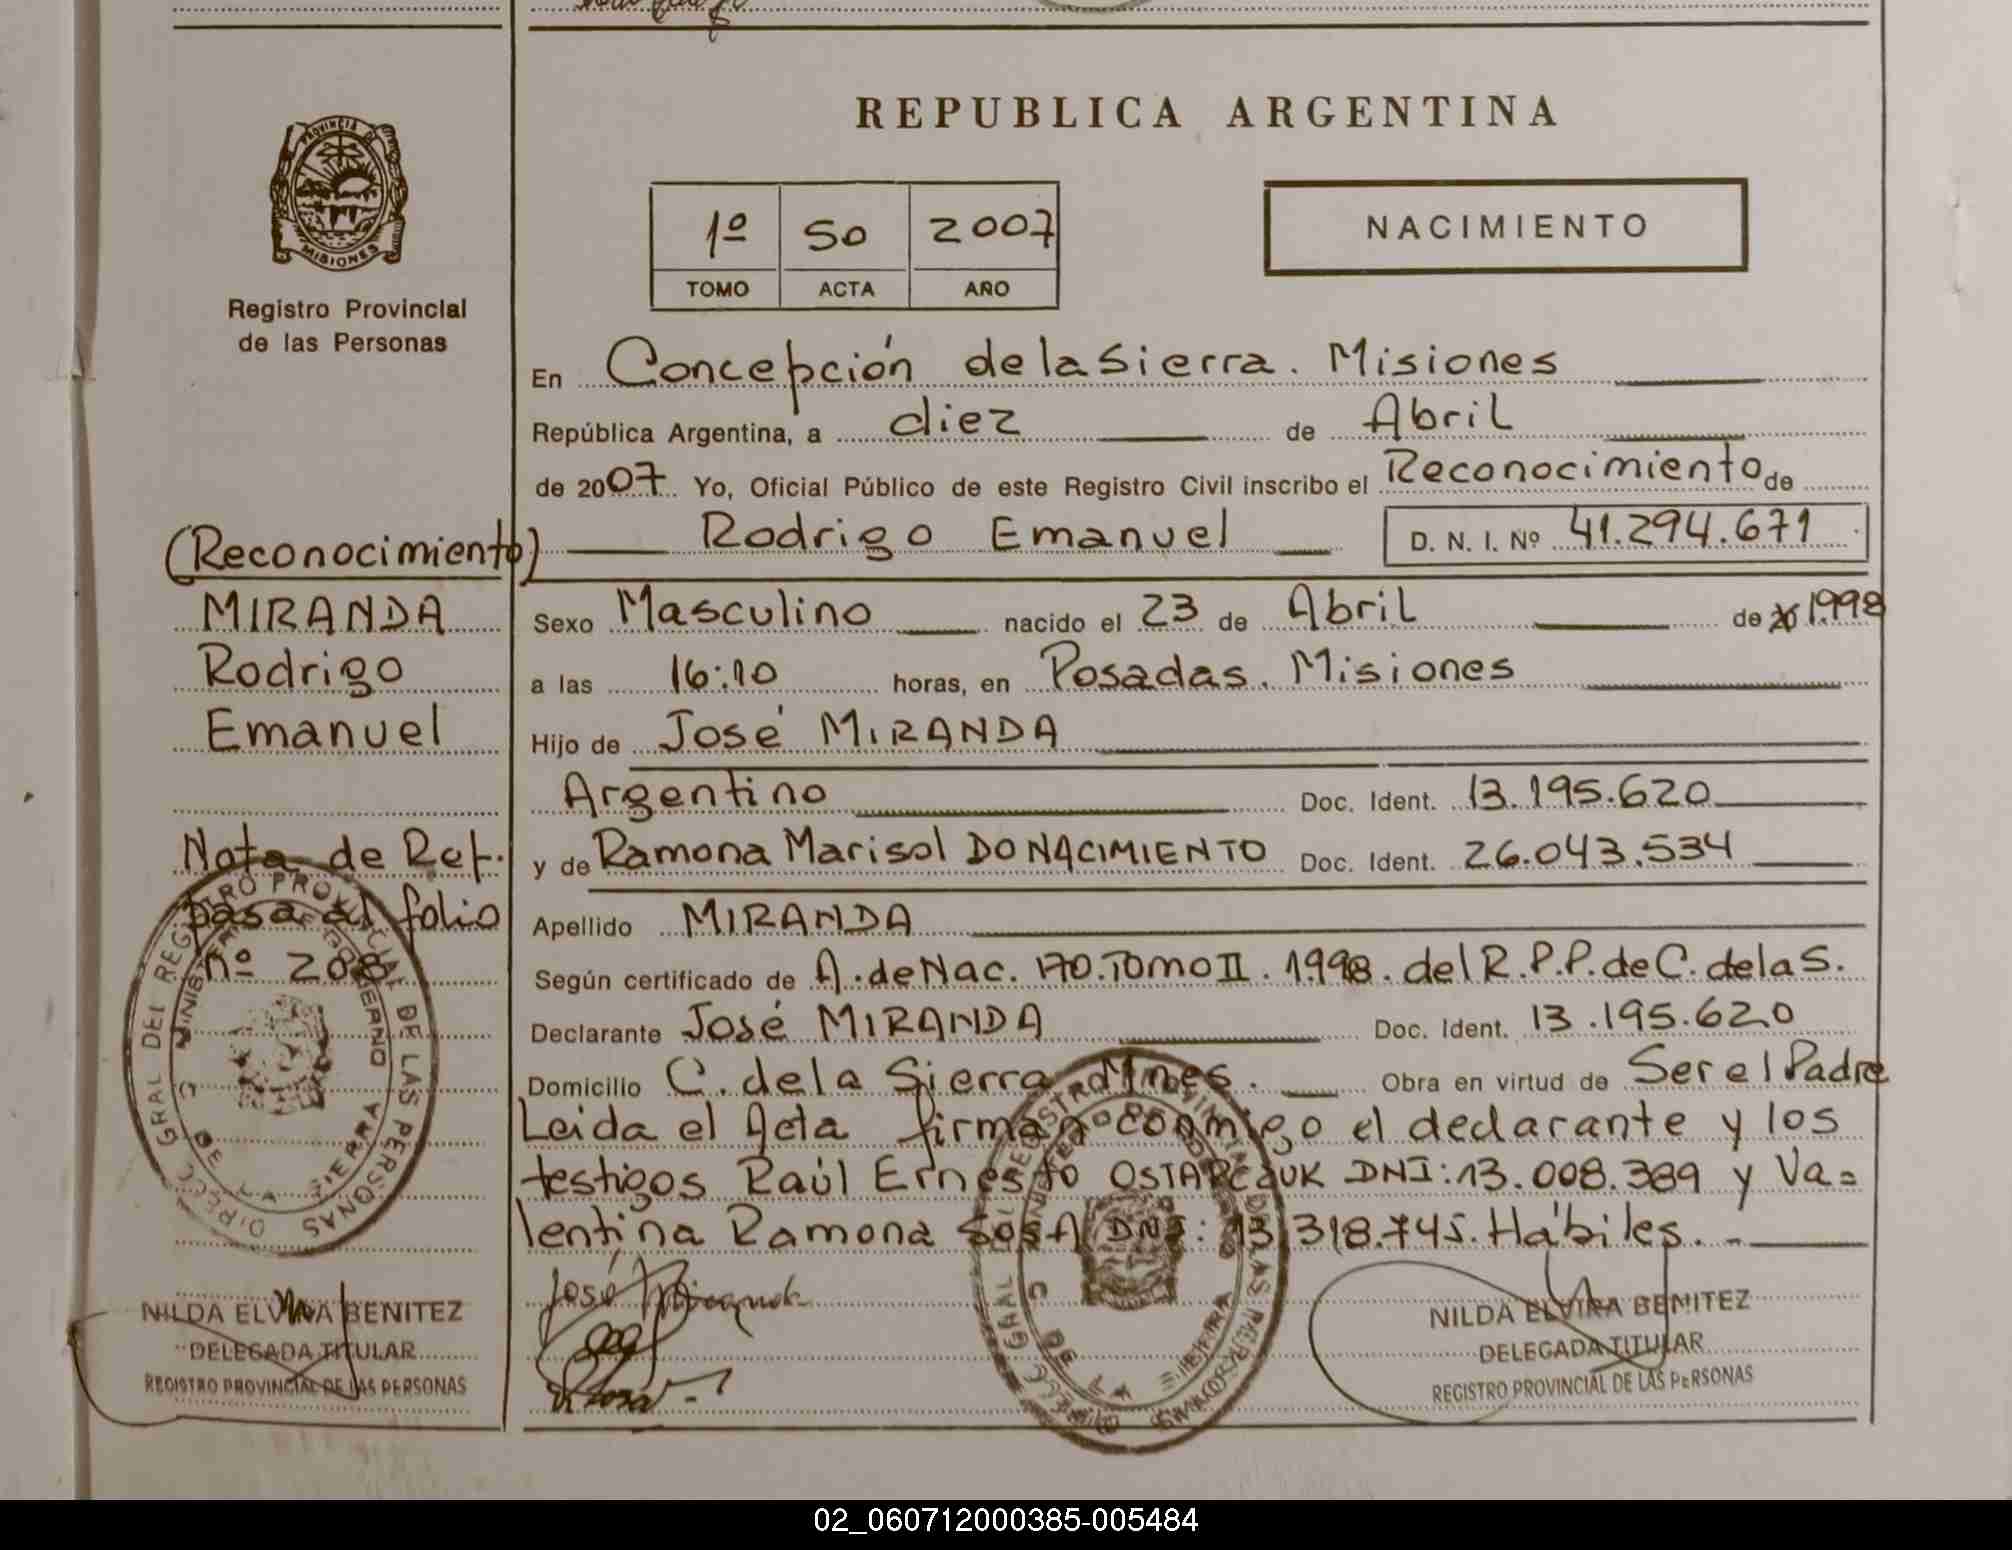 REPUBLICA ARGENTINA
PROVINCIA DE
MISIONES
Registro Provincial
de las Personas
1º 50 2007
TOMO ACTA AÑO
NACIMIENTO
En Concepción de la Sierra. Misiones
República Argentina, a diez de Abril
de 2007 Yo, Oficial Público de este Registro Civil inscribo el Reconocimiento de
Rodrigo Emanuel D. N. I. Nº 41.294.671
Sexo Masculino nacido el 23 de Abril de 1.998
a las 16:10 horas, en Posadas. Misiones
Hijo de José MIRANDA
Argentino Doc. Ident. 13.195.620
y de Ramona Marisol DO NACIMIENTO Doc. Ident. 26.043.534
Apellido MIRANDA
Según certificado de A. de Nac. 170. Tomo II. 1998. del R.P.P. de C. de la S.
Declarante José MIRANDA Doc. Ident. 13.195.620
Domicilio C. de la Sierra Mnes. Obra en virtud de Ser el Padre
Leida el Acta firman conmigo el declarante y los
testigos Raúl Ernesto OSTAPCZUK DNI: 13.008.389 y Va=
lentina Ramona SOSA DNI: 13.318.745. Hábiles.
José Miranda
NILDA ELVIRA BENITEZ
DELEGADA TITULAR
REGISTRO PROVINCIAL DE LAS PERSONAS
(Reconocimiento)
MIRANDA
Rodrigo
Emanuel
Nota de Ref.
pasa al folio
nº 208
DIRECC GRAL DEL REGISTRO PROVINCIAL DE LAS PERSONAS
MINISTERIO DE GOBIERNO
C DE LA SIERRA
NILDA ELVIRA BENITEZ
DELEGADA TITULAR
REGISTRO PROVINCIAL DE LAS PERSONAS
02_060712000385-005484